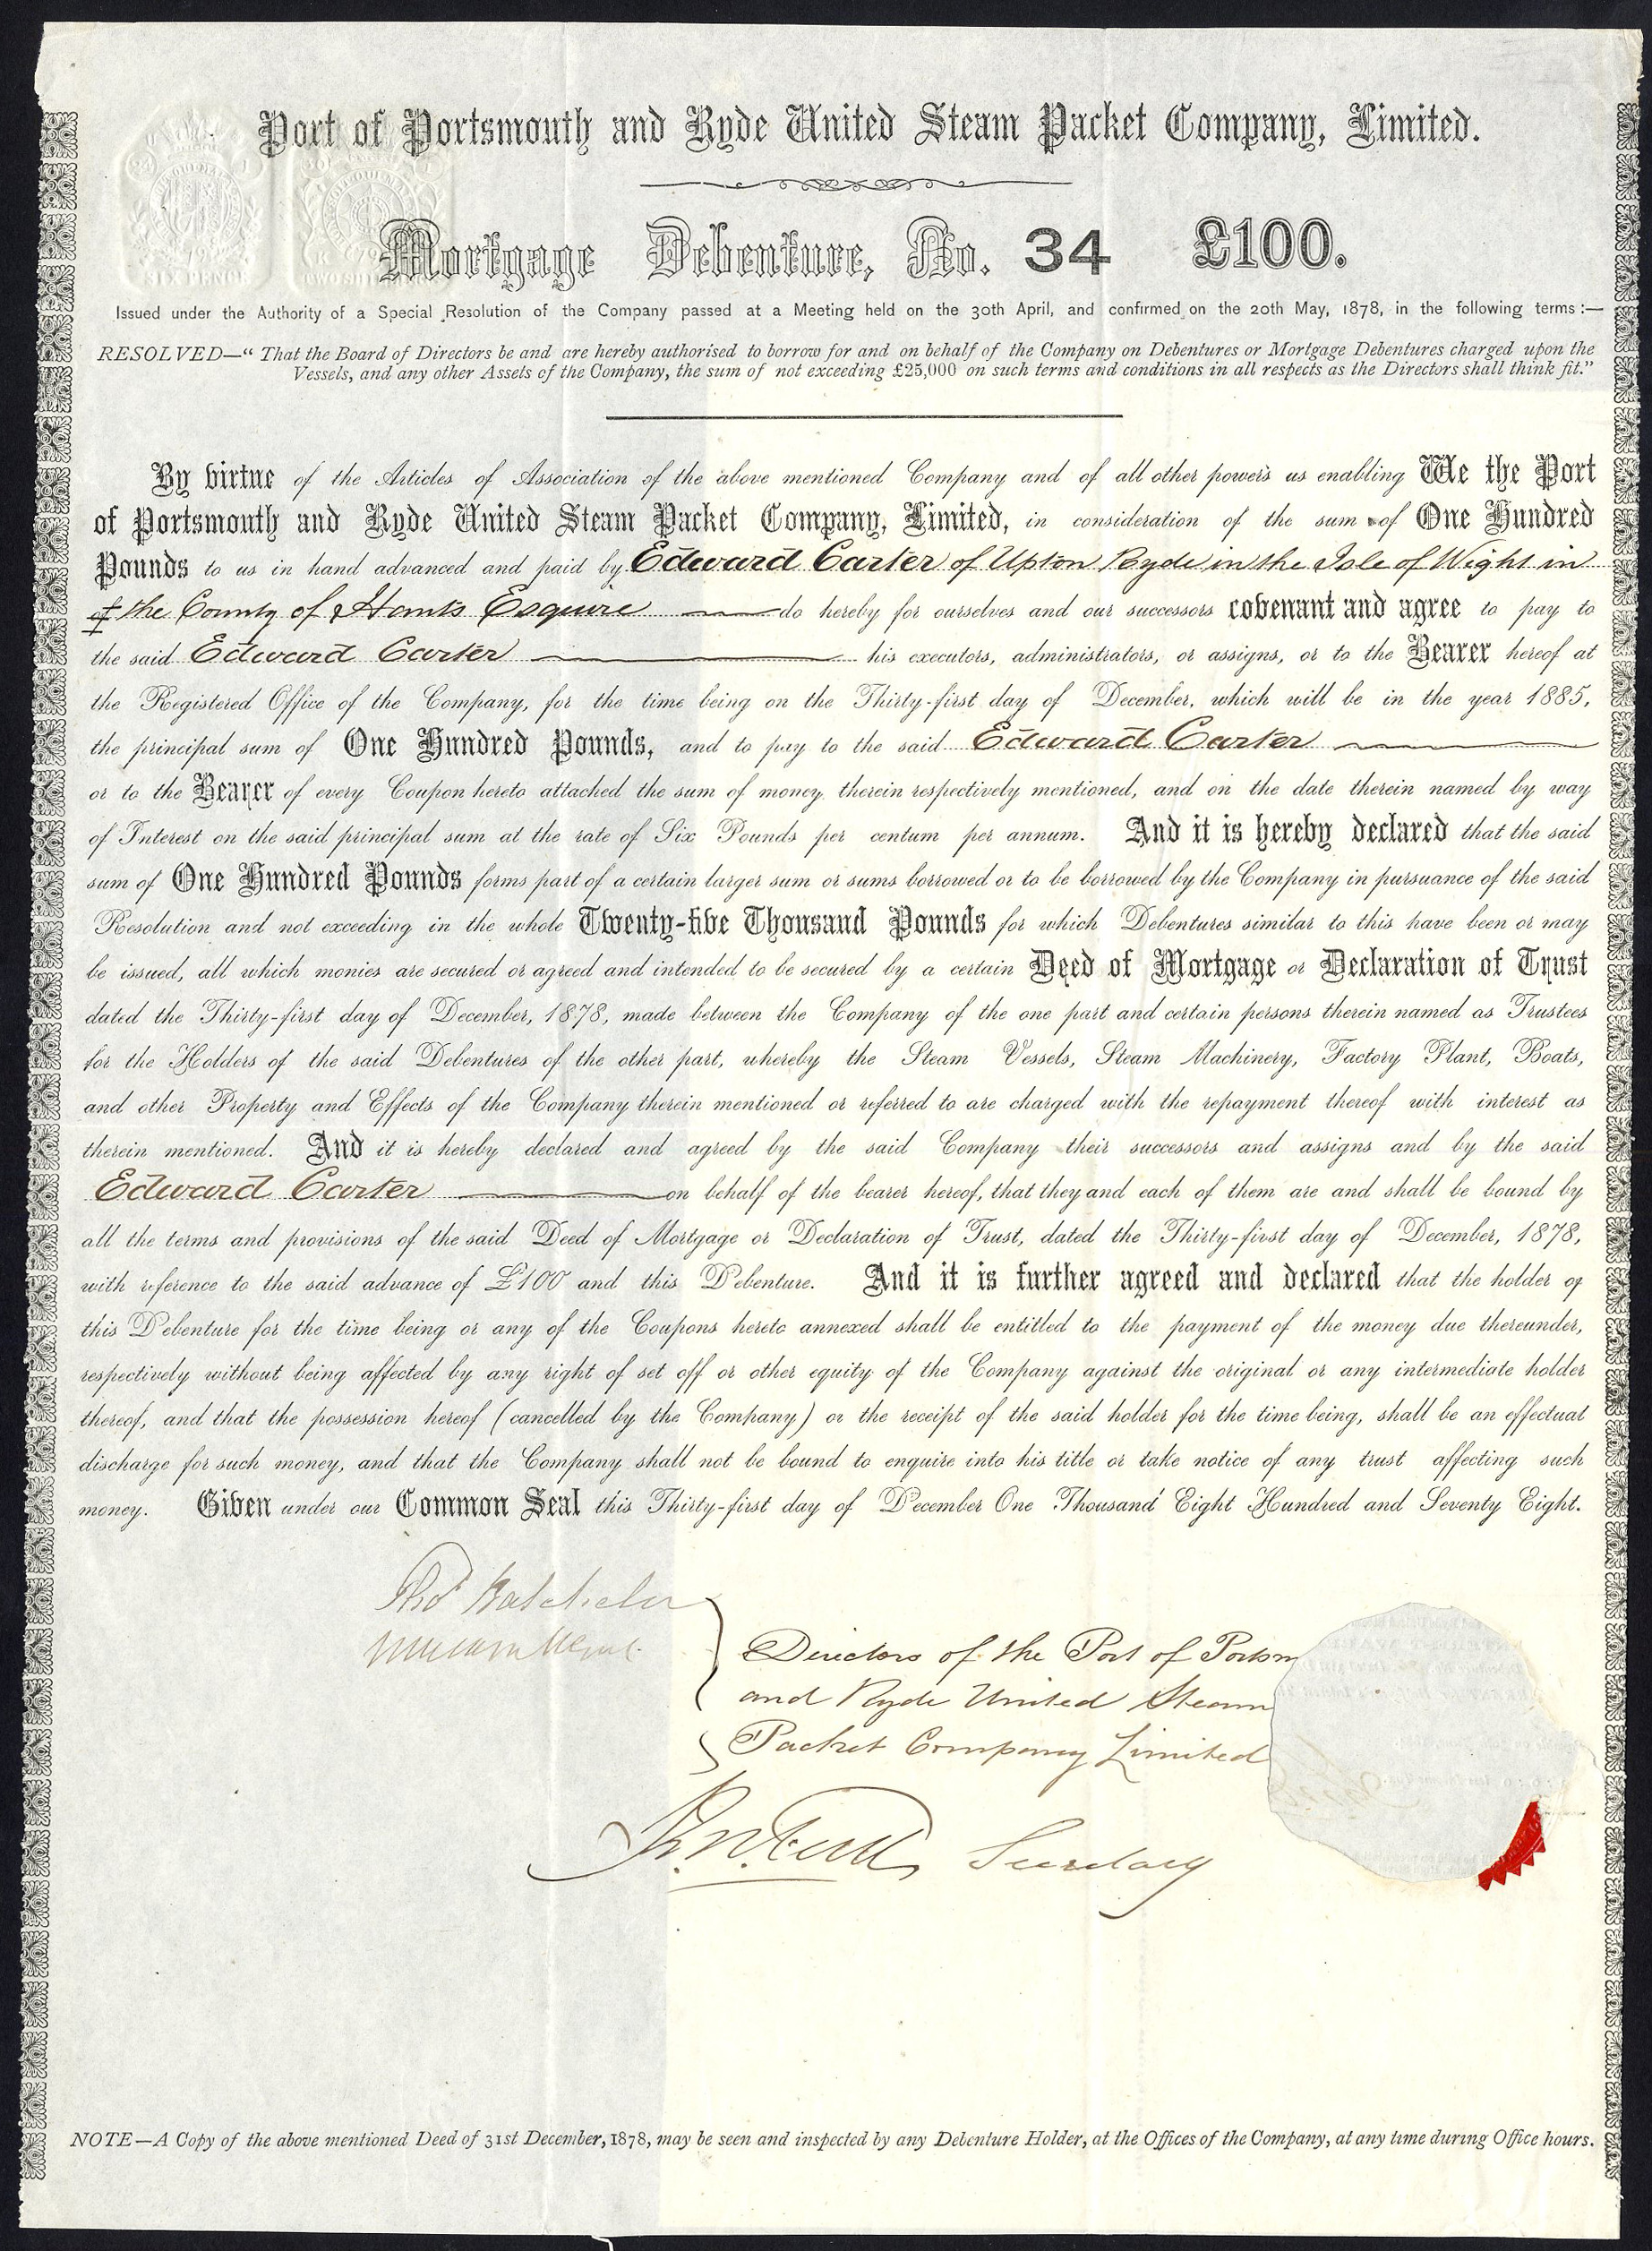 Port of Portsmouth and Ryde United Steam Packet Company, Limited.
Mortgage Debenture, No. 34 £100.
SIX PENCE
Issued under the Authority of a Special Resolution of the Company passed at a Meeting held on the 30th April, and confirmed on the 20th May, 1878, in the following terms:—
RESOLVED—“That the Board of Directors be and are hereby authorised to borrow for and on behalf of the Company on Debentures or Mortgage Debentures charged upon the
Vessels, and any other Assets of the Company, the sum of not exceeding £25,000 on such terms and conditions in all respects as the Directors shall think fit.”
By virtue of the Articles of Association of the above mentioned Company and of all other powers us enabling We the Port
of Portsmouth and Ryde United Steam Packet Company, Limited, in consideration of the sum of One Hundred
Pounds to us in hand advanced and paid by Edward Carter of Upton Ryde in the Isle of Wight in
of the County of Hants Esquire do hereby for ourselves and our successors covenant and agree to pay to
the said Edward Carter his executors, administrators, or assigns, or to the Bearer hereof at
the Registered Office of the Company, for the time being on the Thirty-first day of December, which will be in the year 1885,
the principal sum of One Hundred Pounds, and to pay to the said Edward Carter
or to the Bearer of every Coupon hereto attached the sum of money therein respectively mentioned, and on the date therein named by way
of Interest on the said principal sum at the rate of Six Pounds per centum per annum. And it is hereby declared that the said
sum of One Hundred Pounds forms part of a certain larger sum or sums borrowed or to be borrowed by the Company in pursuance of the said
Resolution and not exceeding in the whole Twenty-five Thousand Pounds for which Debentures similar to this have been or may
be issued, all which monies are secured or agreed and intended to be secured by a certain Deed of Mortgage or Declaration of Trust
dated the Thirty-first day of December, 1878, made between the Company of the one part and certain persons therein named as Trustees
for the Holders of the said Debentures of the other part, whereby the Steam Vessels, Steam Machinery, Factory Plant, Boats,
and other Property and Effects of the Company therein mentioned or referred to are charged with the repayment thereof with interest as
therein mentioned. And it is hereby declared and agreed by the said Company their successors and assigns and by the said
Edward Carter on behalf of the bearer hereof, that they and each of them are and shall be bound by
all the terms and provisions of the said Deed of Mortgage or Declaration of Trust, dated the Thirty-first day of December, 1878,
with reference to the said advance of £100 and this Debenture. And it is further agreed and declared that the holder of
this Debenture for the time being or any of the Coupons hereto annexed shall be entitled to the payment of the money due thereunder,
respectively without being affected by any right of set off or other equity of the Company against the original or any intermediate holder
thereof, and that the possession hereof (cancelled by the Company) or the receipt of the said holder for the time being, shall be an effectual
discharge for such money, and that the Company shall not be bound to enquire into his title or take notice of any trust affecting such
money. Given under our Common Seal this Thirty-first day of December One Thousand Eight Hundred and Seventy Eight.
Thos Batchelor
Directors of the Port of Portsm
and Ryde United Steam
Packet Company Limited
Secretary
NOTE—A Copy of the above mentioned Deed of 31st December, 1878, may be seen and inspected by any Debenture Holder, at the Offices of the Company, at any time during Office hours.